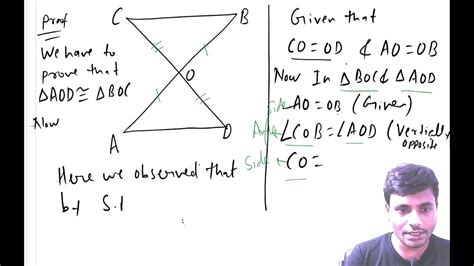 Proof
We have to
prove that
△AOD ≅ △BOC
Now
C
B
O
A
D
Here we observed that
by S.A
Given that
CO = OD & AO = OB
Now In △BOC & △AOD
Side AO = OB (Given)
Angle ∠COB = ∠AOD (Vertically
opposite
Side CO =